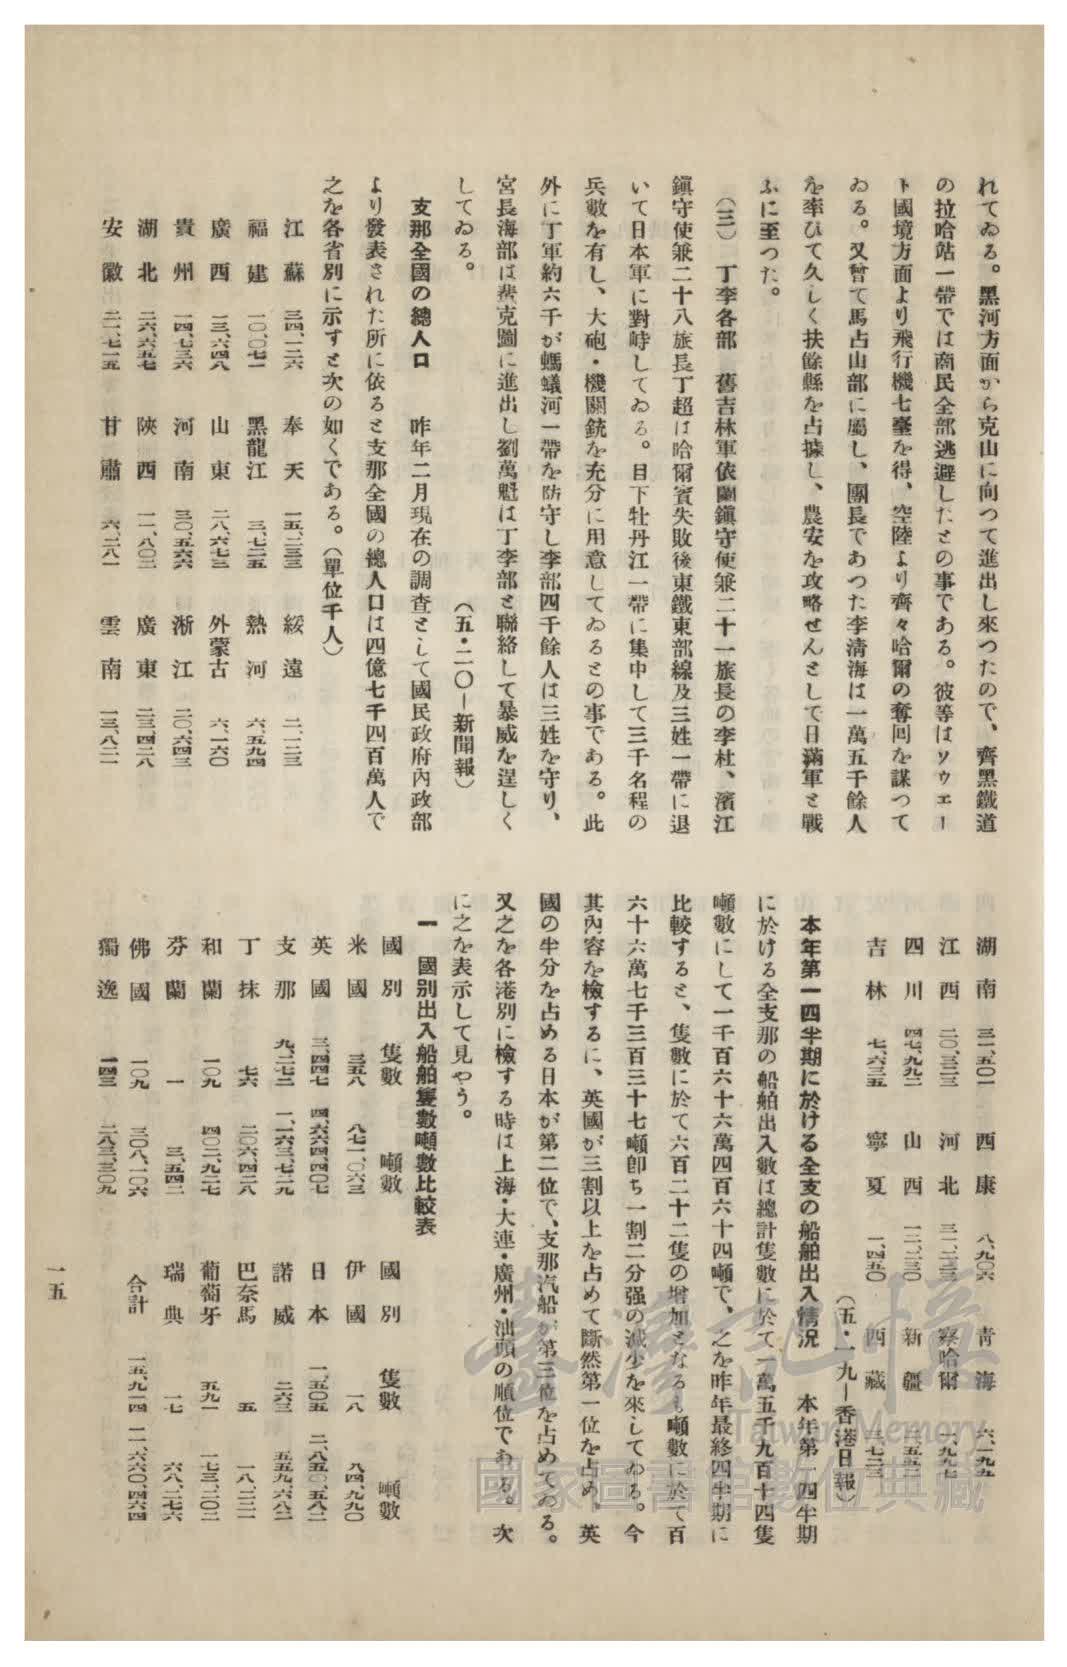 れてゐる。黑河方面から克山に向つて進出し來つたので、齊黑鐵道
の拉哈站一帶では商民全部逃避したとの事である。彼等はソウエー
ト國境方面より飛行機七臺を得、空陸より齊々哈爾の奪回を謀つて
ゐる。又曾て馬占山部に屬し、團長であつた李淸海は一萬五千餘人
を率ひて久しく扶餘縣を占據し、農安を攻略せんとして日滿軍と戰
ふに至つた。
(三) 丁李各部 舊吉林軍依蘭鎭守使兼二十一旅長の李杜、濱江
鎭守使兼二十八旅長丁超は哈爾賓失敗後東鐵東部線及三姓一帶に退
いて日本軍に對峙してゐる。目下牡丹江一帶に集中して三千名程の
兵數を有し、大砲・機關銃を充分に用意してゐるとの事である。此
外に丁軍約六千が螞蟻河一帶を防守し李部四千餘人は三姓を守り、
宮長海部は蜚克圖に進出し劉萬魁は丁李部と聯絡して暴威を逞しく
してゐる。 (五・二〇—新聞報)
支那全國の總人口 昨年二月現在の調査として國民政府內政部
より發表された所に依ると支那全國の總人口は四億七千四百萬人で
之を各省別に示すと次の如くである。(單位千人)
江蘇 三四、一二六 奉天 一五、二三三 綏遠 二、一二三
福建 一〇、〇七一 黑龍江 三、七二五 熱河 六、五九四
廣西 一三、六四八 山東 二八、六七三 外蒙古 六、一六〇
貴州 一四、七三六 河南 三〇、五六六 浙江 二〇、六四三
湖北 二六、六五七 陝西 一一、八〇二 廣東 三三、四二八
安徽 二一、七一五 甘肅 六、二八一 雲南 一三、八二一
湖南 三一、五〇一 西康 八、九〇六 靑海 六、一九五
江西 二〇、三二三 河北 三一、二三二 察哈爾 一、九九七
四川 四七、九九二 山西 一二、二三〇 新疆 二、五五
吉林 七、六三五 寧夏 一、四五〇 西藏 三、七二二
(五・一九—香港日報)
本年第一四半期に於ける全支の船舶出入情況 本年第一四半期
に於ける全支那の船舶出入數は總計隻數に於て一萬五千九百十四隻
噸數にして一千百六十六萬四百六十四噸で、之を昨年最終四半期に
比較すると、隻數に於て六百二十二隻の增加となるも噸數に於て百
六十六萬七千三百三十七噸卽ち一割二分强の減少を來してゐる。今
其內容を檢するに、英國が三割以上を占めて斷然第一位を占め、英
國の半分を占める日本が第二位で、支那汽船が第三位を占めてゐる。
又之を各港別に檢する時は上海・大連・廣州・汕頭の順位である。次
に之を表示して見やう。
一 國別出入船舶隻數噸數比較表
國別 隻數 噸數 國別 隻數 噸數
米國 三五八 八七一、〇六三 伊國 一八 八四、九九〇
英國 三、四四七 四、六六四、四〇七 日本 一、五〇五 二、八五〇、五八二
支那 九、二七二 一、一六三、七二九 諾威 二六三 五五九、六八二
丁抹 七六 二〇六、四二八 巴奈馬 五 一八、二二一
和蘭 一〇九 四〇二、九二七 葡萄牙 五九一 一七三、二〇二
芬蘭 一 三、五四二 瑞典 一七 六八、二七六
佛國 一〇九 三〇八、一〇六 合計 一五、九一四 一一、六六〇、四六四
獨逸 一四三 二八三、三〇九
一五
臺灣記憶
Taiwan Memory
國家圖書館數位典藏